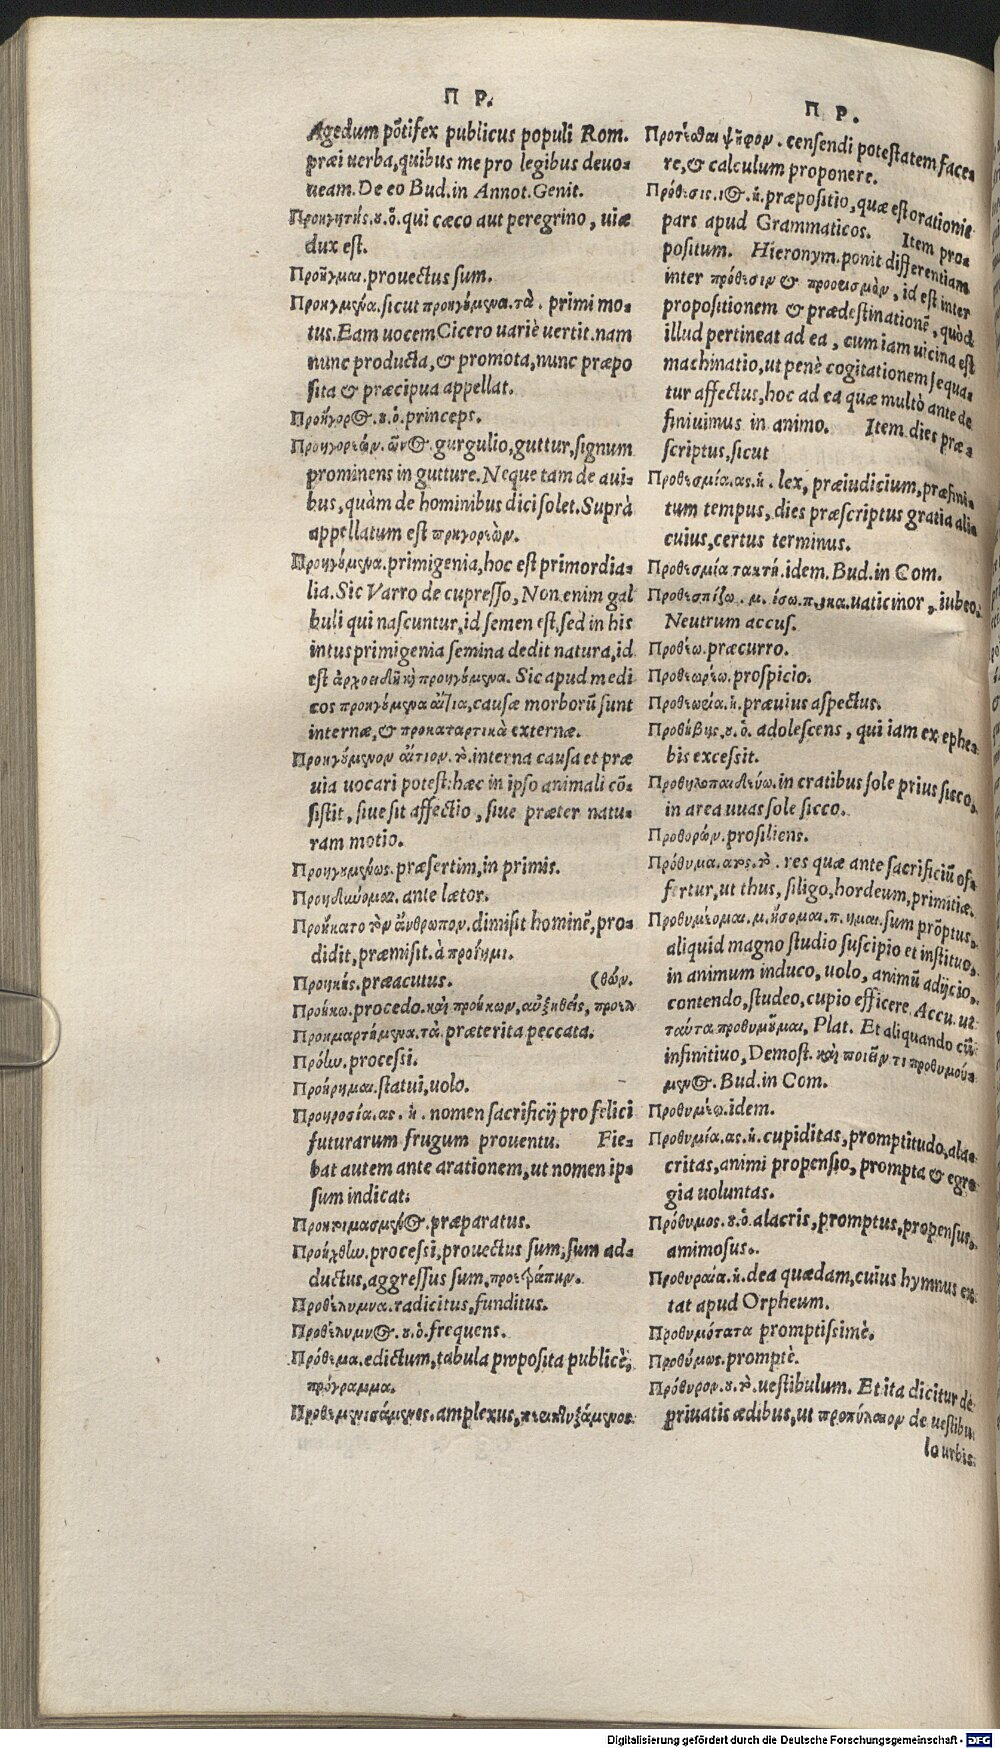 Π Ρ.
Agedum põtifex publicus populi Rom.
præi uerba, quibus me pro legibus deuo-
ueam. De eo Bud. in Annot. Genit.
Προηγητής.ȣ.ὁ. qui cæco aut peregrino, uiæ
dux est.
Προῆγμαι. prouectus sum.
Προηγμένα. sicut προηγȣ́μενα. τὰ. primi mo-
tus. Eam uocem Cicero uariè uertit. nam
nunc producta, & promota, nunc præpo
sita & præcipua appellat.
Προήγορος.ȣ.ὁ. princeps.
Προηγορεών. ῶνος. gurgulio, guttur, signum
prominens in gutture. Neque tam de aui-
bus, quàm de hominibus dici solet. Suprà
appellatum est πρηγορεὼν.
Προηγȣ́μενα. primigenia, hoc est primordia-
lia. Sic Varro de cupresso, Non enim gal
buli qui nascuntur, id semen est, sed in his
intus primigenia semina dedit natura, id
est ἀρχοειδῆ κὴ προηγȣ́μενα. Sic apud medi
cos προηγȣ́μενα αἴτια, causæ morborũ sunt
internæ, & προκαταρτικὰ externæ.
Προηγȣ́μενον αἴτιον. τὸ. interna causa et præ
uia uocari potest: hæc in ipso animali cõ-
sistit, siue sit affectio, siue præter natu-
ram motio.
Προηγȣμένως. præsertim, in primis.
Προηδύνομαι. ante lætor.
Προήκατο τὸν ἄνθρωπον. dimisit hominẽ, pro-
didit, præmisit. à προΐημι.
Προηκής. præacutus. (θών.
Προήκω. procedo. καὶ προήκων, αὐξηθεὶς, προελ
Προημαρτημένα. τὰ. præterita peccata.
Πρόην. processi.
Προήρημαι. statui, uolo.
Προηροσία. ας. ἡ. nomen sacrificij pro felici
futurarum frugum prouentu. Fie-
bat autem ante arationem, ut nomen ip-
sum indicat.
Προητοιμασμένος. præparatus.
Προήχθην. processi, prouectus sum, sum ad-
ductus, aggressus sum, προετράπην.
Προθέλυμνα. radicitus, funditus.
Προθέλυμνος.ȣ.ὁ. frequens.
Πρόθεμα. edictum, tabula proposita publicè,
πρόγραμμα.
Προθεμενισάμενος. amplexus, περιπτυξάμενος.
Π Ρ.
Προτίθεσθαι ψῆφον. censendi potestatem face-
re, & calculum proponere.
Πρόθεσις. ιος. ἡ. præpositio, quæ est orationis
pars apud Grammaticos. Item pro-
positum. Hieronym. ponit differentiam
inter πρόθεσιν & προορισμὸν, id est inter
propositionem & prædestinationẽ, quòd
illud pertineat ad ea, cum iam uicina est
machinatio, ut penè cogitationem sequa-
tur affectus, hoc ad ea quæ multò ante de
finiuimus in animo. Item dies præ-
scriptus, sicut
Προθεσμία. ας. ἡ. lex, præiudicium, præfini-
tum tempus, dies præscriptus gratia ali-
cuius, certus terminus.
Προθεσμία τακτή. idem. Bud. in Com.
Προθεσπίζω. μ. ίσω. π. ικα. uaticinor, iubeo.
Neutrum accus.
Προθέω. præcurro.
Προθεωρέω. prospicio.
Προθεωρία. ἡ. præuius aspectus.
Προθήβης.ȣ.ὁ. adolescens, qui iam ex ephe-
bis excessit.
Προθηλοπαιδεύω. in cratibus sole prius sicco,
in area uuas sole sicco.
Προθορών. prosiliens.
Πρόθυμα. ατος. τὸ. res quæ ante sacrificiũ of-
fertur, ut thus, siligo, hordeum, primitiæ.
Προθυμέομαι. μ. ήσομαι. π. ημαι. sum prõptus,
aliquid magno studio suscipio et instituo,
in animum induco, uolo, animũ adijcio,
contendo, studeo, cupio efficere. Accu. ut
ταῦτα προθυμῦμαι, Plat. Et aliquando cũ
infinitiuo, Demost. καὶ ποιεῖν τι προθυμού-
μενος. Bud. in Com.
Προθυμέω. idem.
Προθυμία. ας. ἡ. cupiditas, promptitudo, ala-
critas, animi propensio, prompta & egre
gia uoluntas.
Πρόθυμος.ȣ.ὁ. alacris, promptus, propensus,
animosus.
Προθυραία. ἡ. dea quædam, cuius hymnus ex-
tat apud Orpheum.
Προθυμότατα promptissimè.
Προθύμως. promptè.
Πρόθυρον.ȣ.τὸ. uestibulum. Et ita dicitur de
priuatis ædibus, ut προπύλαιον de uestibu
lo urbis.
Digitalisierung gefördert durch die Deutsche Forschungsgemeinschaft - DFG